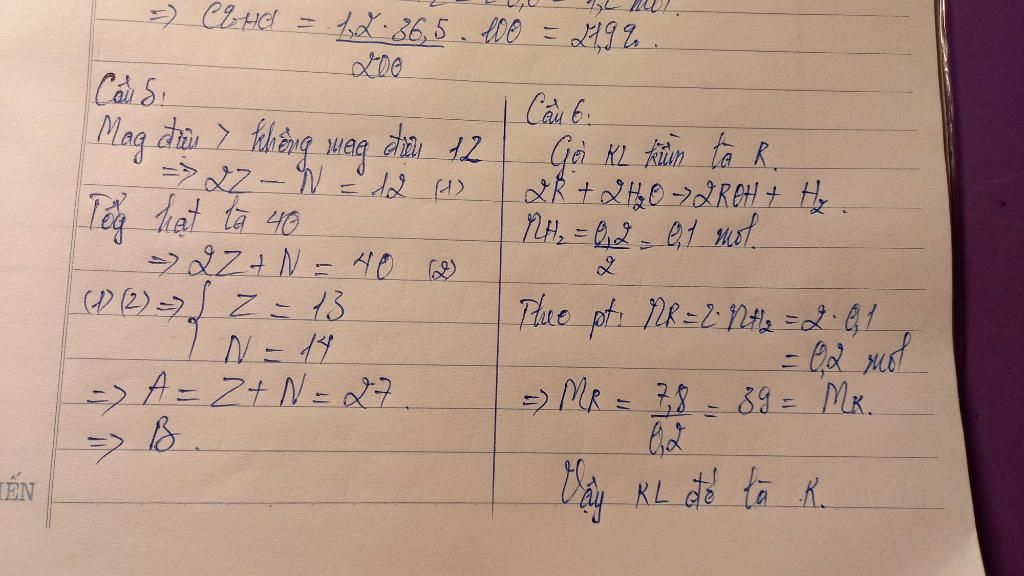 => C%HCl = 1,2 · 36,5 / 200 . 100 = 21,9%.
Câu 5:
Mag điện > không mag điện 12
=> 2Z - N = 12 (1)
Tổg hạt là 40
=> 2Z + N = 40 (2)
(1) (2) => { Z = 13
N = 14
=> A = Z + N = 27.
=> B.
Câu 6:
Gọi KL kiềm là R.
2R + 2H2O -> 2ROH + H2.
nH2 = 0,2 / 2 = 0,1 mol.
Theo pt: nR = 2·nH2 = 2 · 0,1
= 0,2 mol
=> MR = 7,8 / 0,2 = 39 = MK.
Vậy KL đó là K.
IẾN